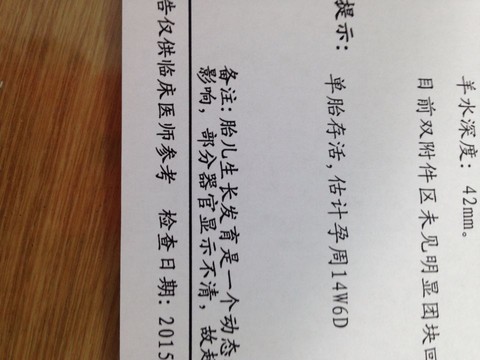 羊水深度: 42mm。
目前双附件区未见明显团块回
提示:
单胎存活,估计孕周14W6D
备注:胎儿生长发育是一个动态
影响,部分器官显示不清,故超
告仅供临床医师参考 检查日期:2015